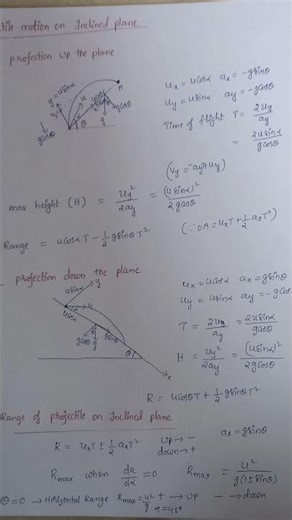 tile motion on Inclined plane
projection up the plane
ux = ucosα ax = -gsinθ
uy = usinα ay = -gcosθ
Time of flight T = 2uy/ay
= 2usinα/gcosθ
(Vy = -ayt+uy)
max height (H) = uy²/2ay = (usinα)²/2gcosθ
Range = ucosαT - 1/2 gsinθT² (∵ OA = uxT + 1/2 axT²)
projection down the plane
y
usinα
u
ucosα
gcosθ
gsinθ
g
θ
x
ux = ucosα ax = gsinθ
uy = usinα ay = -gcosθ
T = 2uy/ay = 2usinα/gcosθ
H = uy²/2ay = (usinα)²/2gcosθ
R = ucosθT + 1/2 gsinθT²
Range of projectile on Inclined plane
R = uxT ± 1/2 axT² up → - ax = gsinθ
down → +
Rmax when dR/dα = 0 Rmax = u²/g(1±sinθ)
θ=0 → Horizontal Range Rmax = u²/g α=45° + → up - → down